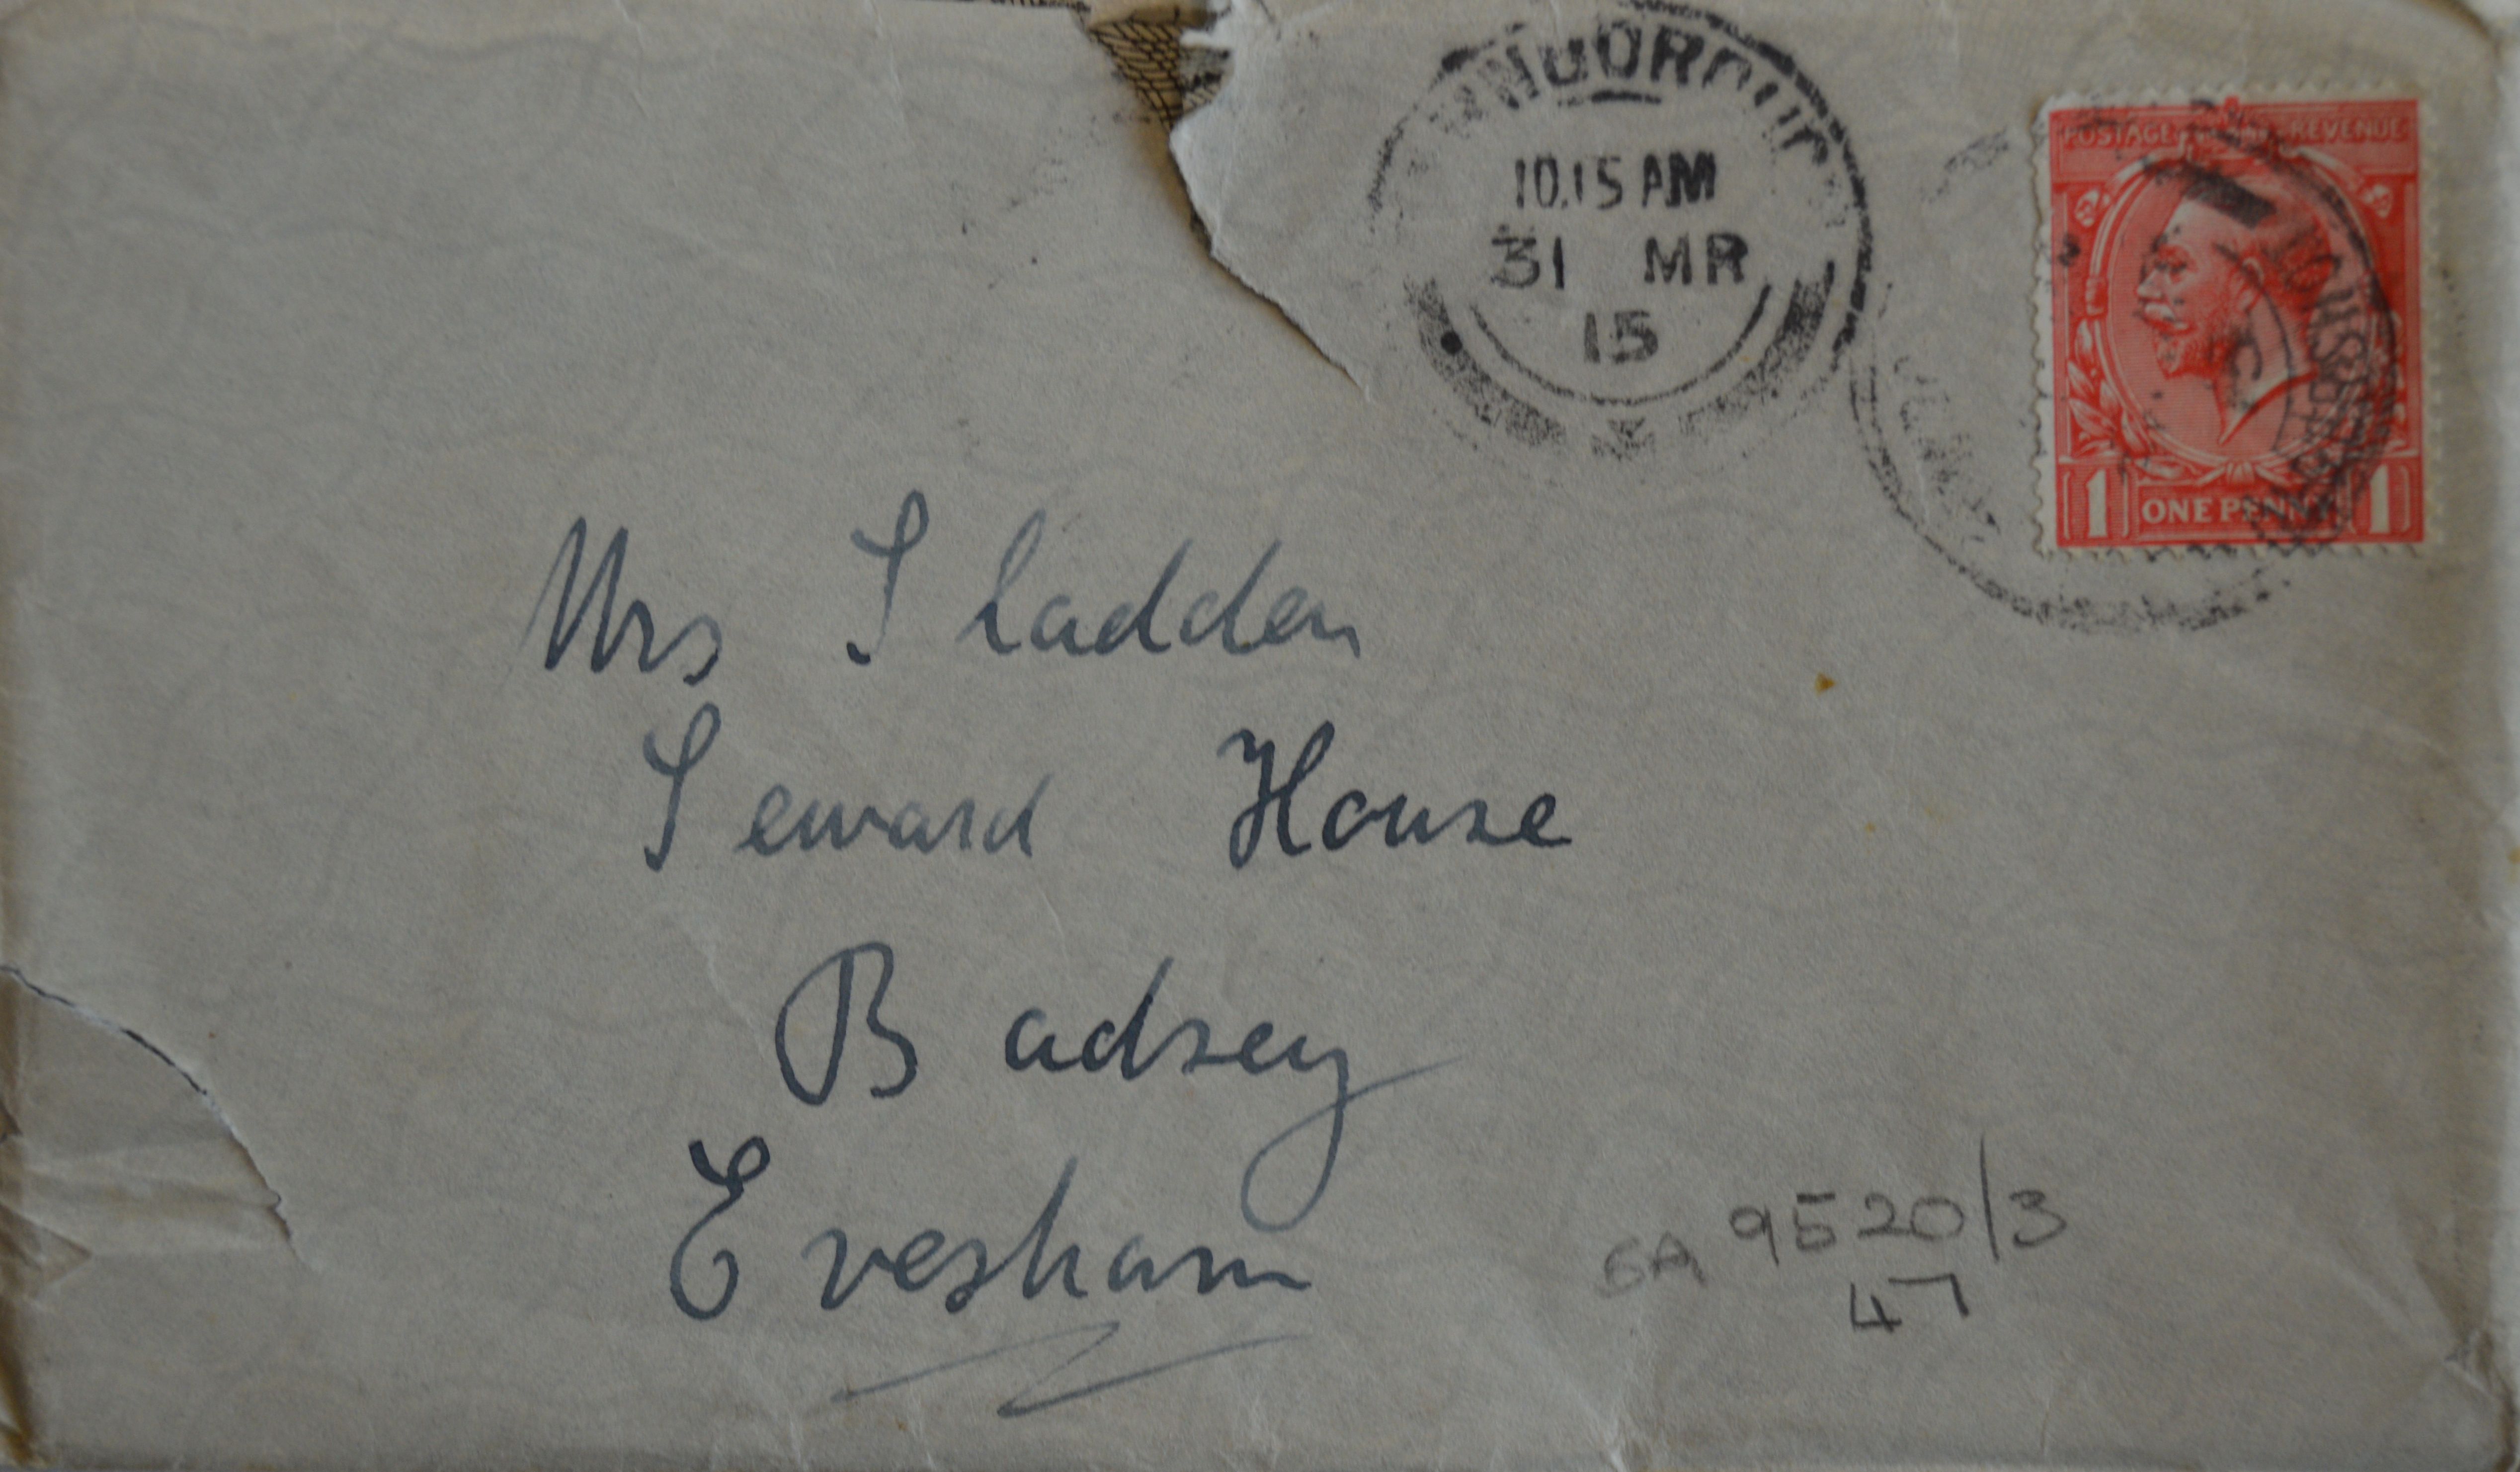 10.15 AM
31 MR
15
POSTAGE REVENUE
1 ONE PENNY 1
Mrs Sladden
Seward House
Badsey
Evesham
9520/3
47